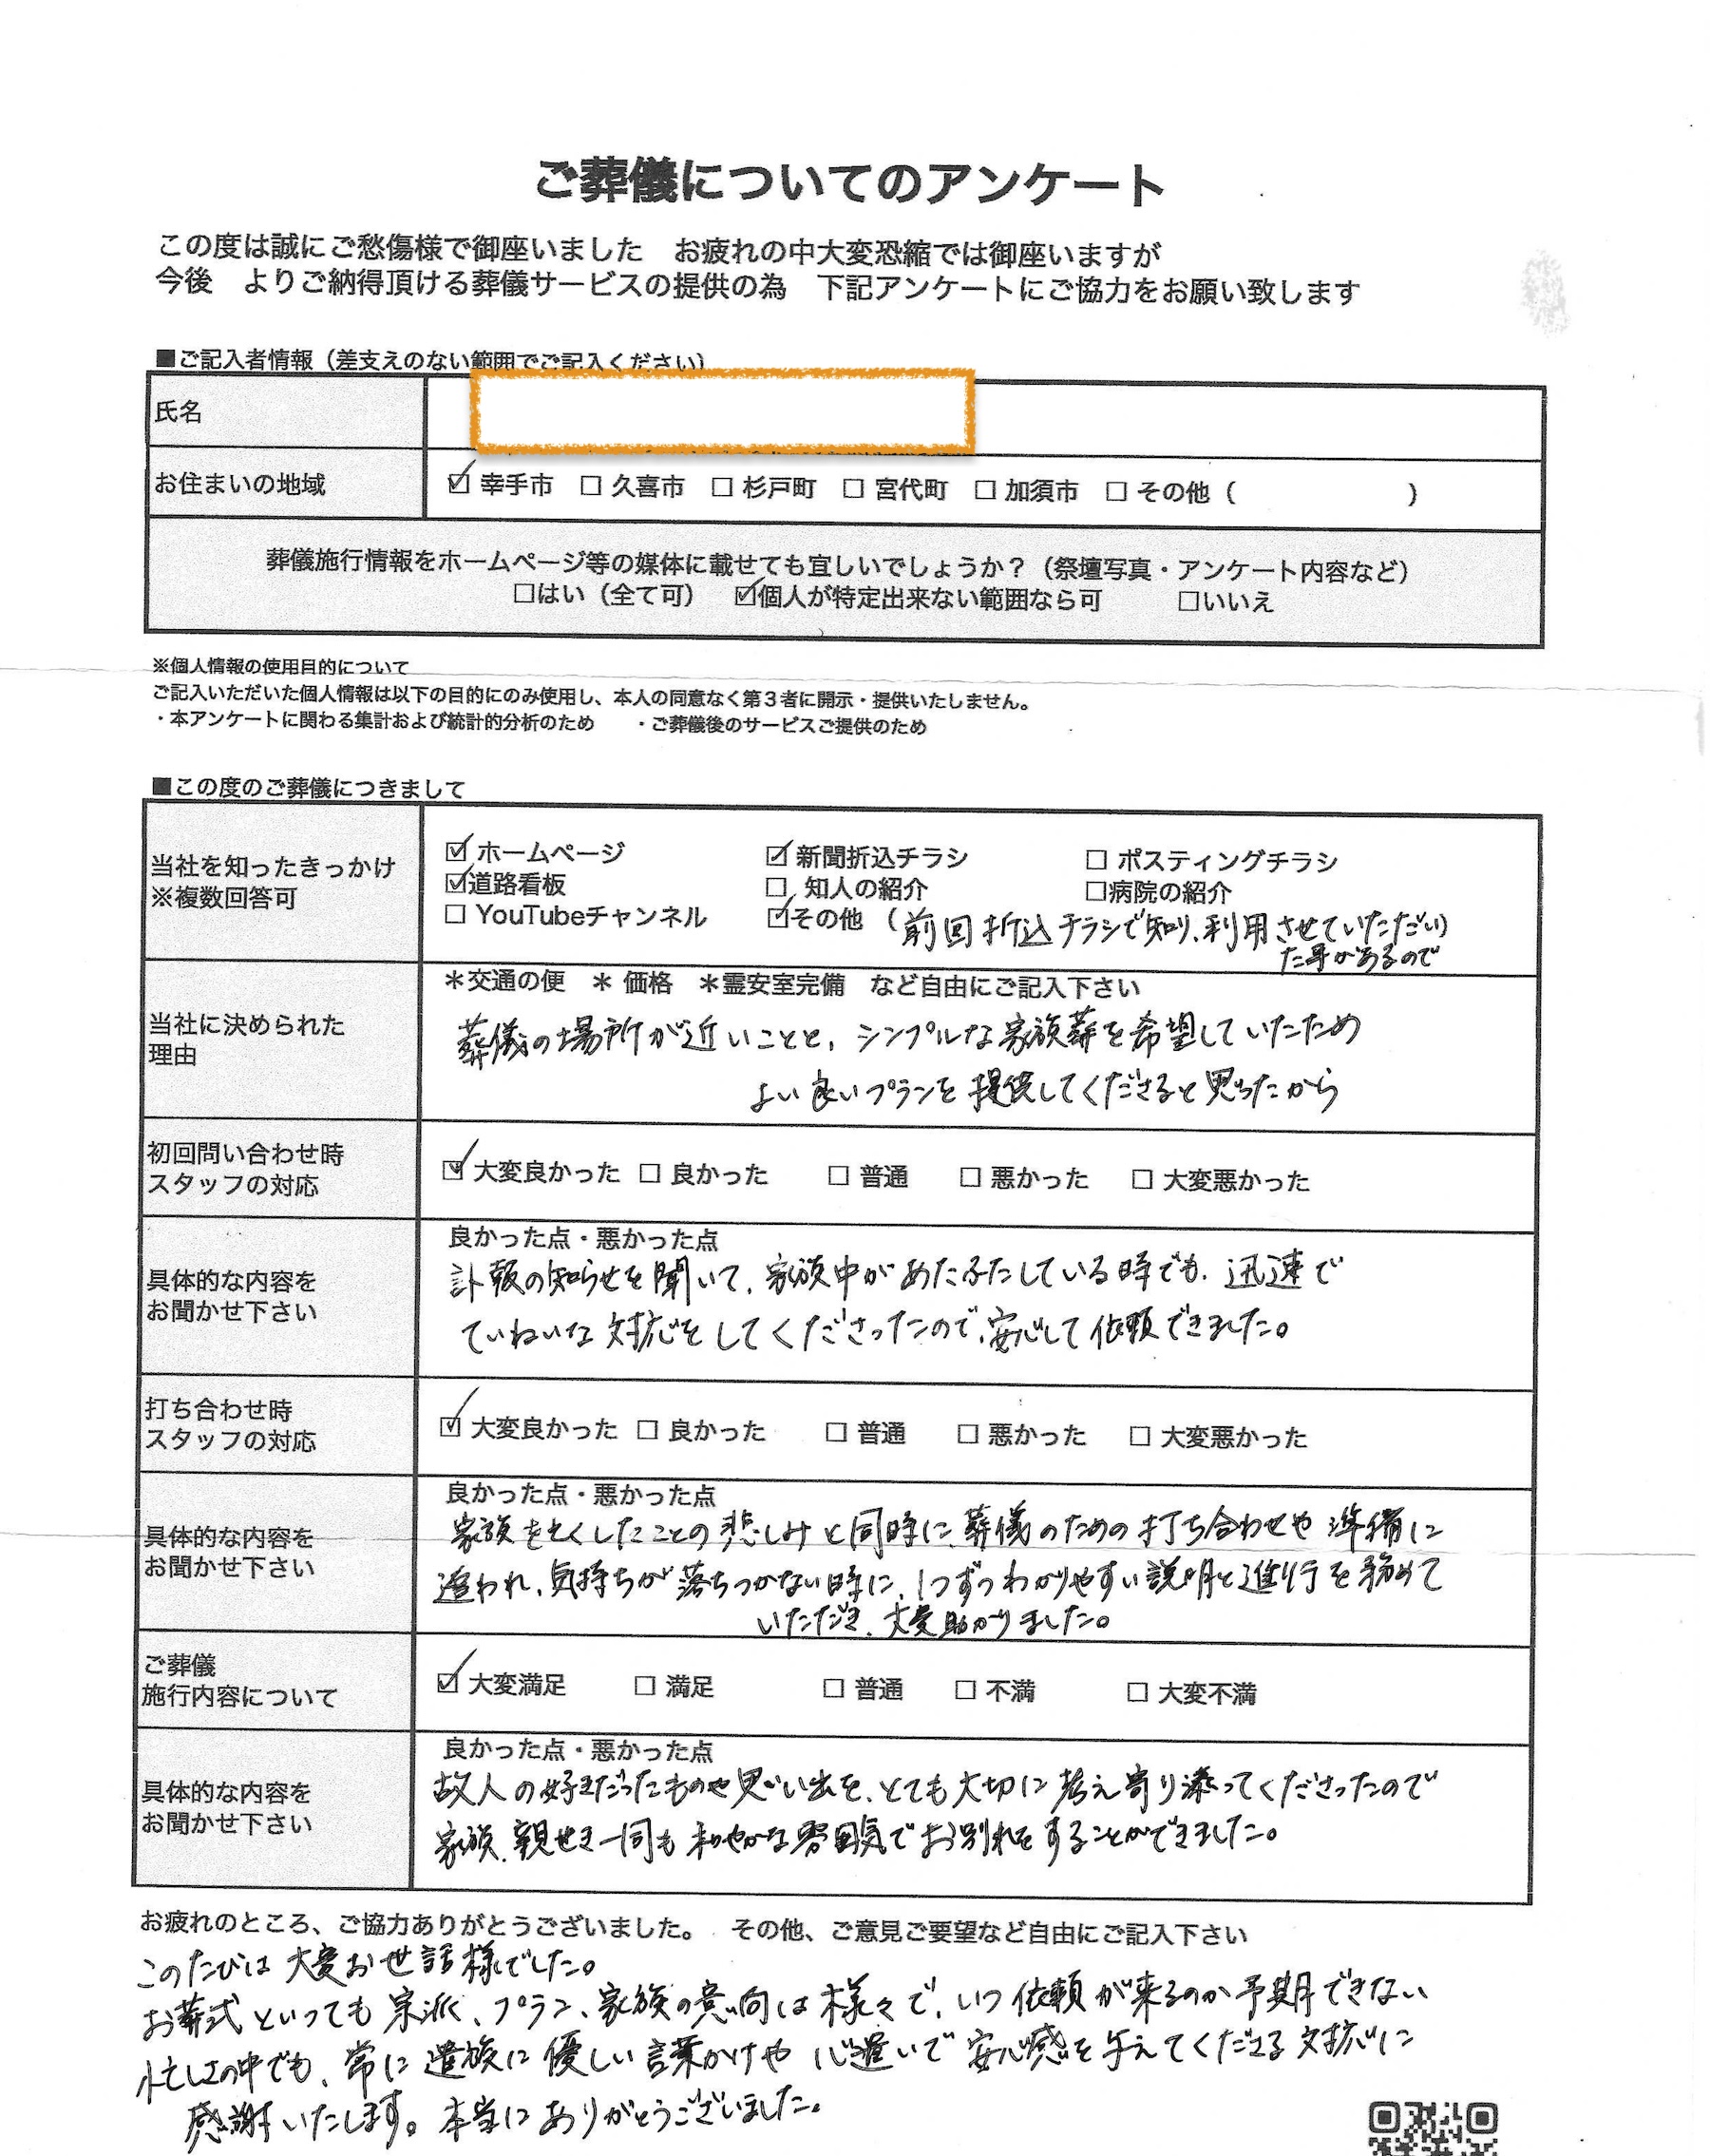 ご葬儀についてのアンケート
この度は誠にご愁傷様で御座いました　お疲れの中大変恐縮では御座いますが
今後　よりご納得頂ける葬儀サービスの提供の為　下記アンケートにご協力をお願い致します
■ご記入者情報（差支えのない範囲でご記入ください）
氏名
お住まいの地域　☑ 幸手市　☐ 久喜市　☐ 杉戸町　☐ 宮代町　☐ 加須市　☐ その他（　　　　　）
葬儀施行情報をホームページ等の媒体に載せても宜しいでしょうか？（祭壇写真・アンケート内容など）
☐はい（全て可）　☑個人が特定出来ない範囲なら可　☐いいえ
※個人情報の使用目的について
ご記入いただいた個人情報は以下の目的にのみ使用し、本人の同意なく第３者に開示・提供いたしません。
・本アンケートに関わる集計および統計的分析のため　・ご葬儀後のサービスご提供のため
■この度のご葬儀につきまして
当社を知ったきっかけ
※複数回答可
☑ ホームページ　☑ 新聞折込チラシ　☐ ポスティングチラシ
☑道路看板　☐ 知人の紹介　☐病院の紹介
☐ YouTubeチャンネル　☑その他（前回折込チラシで知り、利用させていただい）
た事があるので
当社に決められた
理由
＊交通の便　＊ 価格　＊霊安室完備　など自由にご記入下さい
葬儀の場所が近いことと、シンプルな家族葬を希望していたため
よい良いプランを提供してくださると思ったから
初回問い合わせ時
スタッフの対応
☑ 大変良かった　☐ 良かった　☐ 普通　☐ 悪かった　☐ 大変悪かった
具体的な内容を
お聞かせ下さい
良かった点・悪かった点
訃報の知らせを聞いて、家族中があたふたしている時でも、迅速で
ていねいな対応をしてくださったので、安心して依頼できました。
打ち合わせ時
スタッフの対応
☑ 大変良かった　☐ 良かった　☐ 普通　☐ 悪かった　☐ 大変悪かった
具体的な内容を
お聞かせ下さい
良かった点・悪かった点
家族を亡くしたことの悲しみと同時に、葬儀のための打ち合わせや準備に
追われ、気持ちが落ちつかない時に、1つずつわかりやすい説明と進行を務めて
いただき、大変助かりました。
ご葬儀
施行内容について
☑ 大変満足　☐ 満足　☐ 普通　☐ 不満　☐ 大変不満
具体的な内容を
お聞かせ下さい
良かった点・悪かった点
故人の好きだったものや思い出を、とても大切に考え寄り添ってくださったので
家族、親せき一同も和やかな雰囲気でお別れをすることができました。
お疲れのところ、ご協力ありがとうございました。　その他、ご意見ご要望など自由にご記入下さい
このたびは大変お世話様でした。
お葬式といっても宗派、プラン、家族の意向は様々で、いつ依頼が来るのか予期できない
忙しさの中でも、常に遺族に優しい言葉かけや心遣いで安心感を与えてくださる対応に
感謝いたします。本当にありがとうございました。